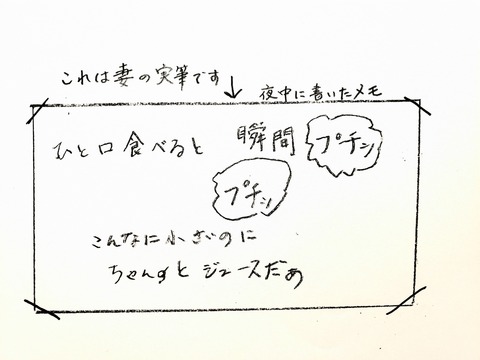 これは妻の実筆です↓
夜中に書いたメモ
ひと口食べると 瞬間 プチン
プチン
こんなに小さいのに
ちゃんとジュースだぁ